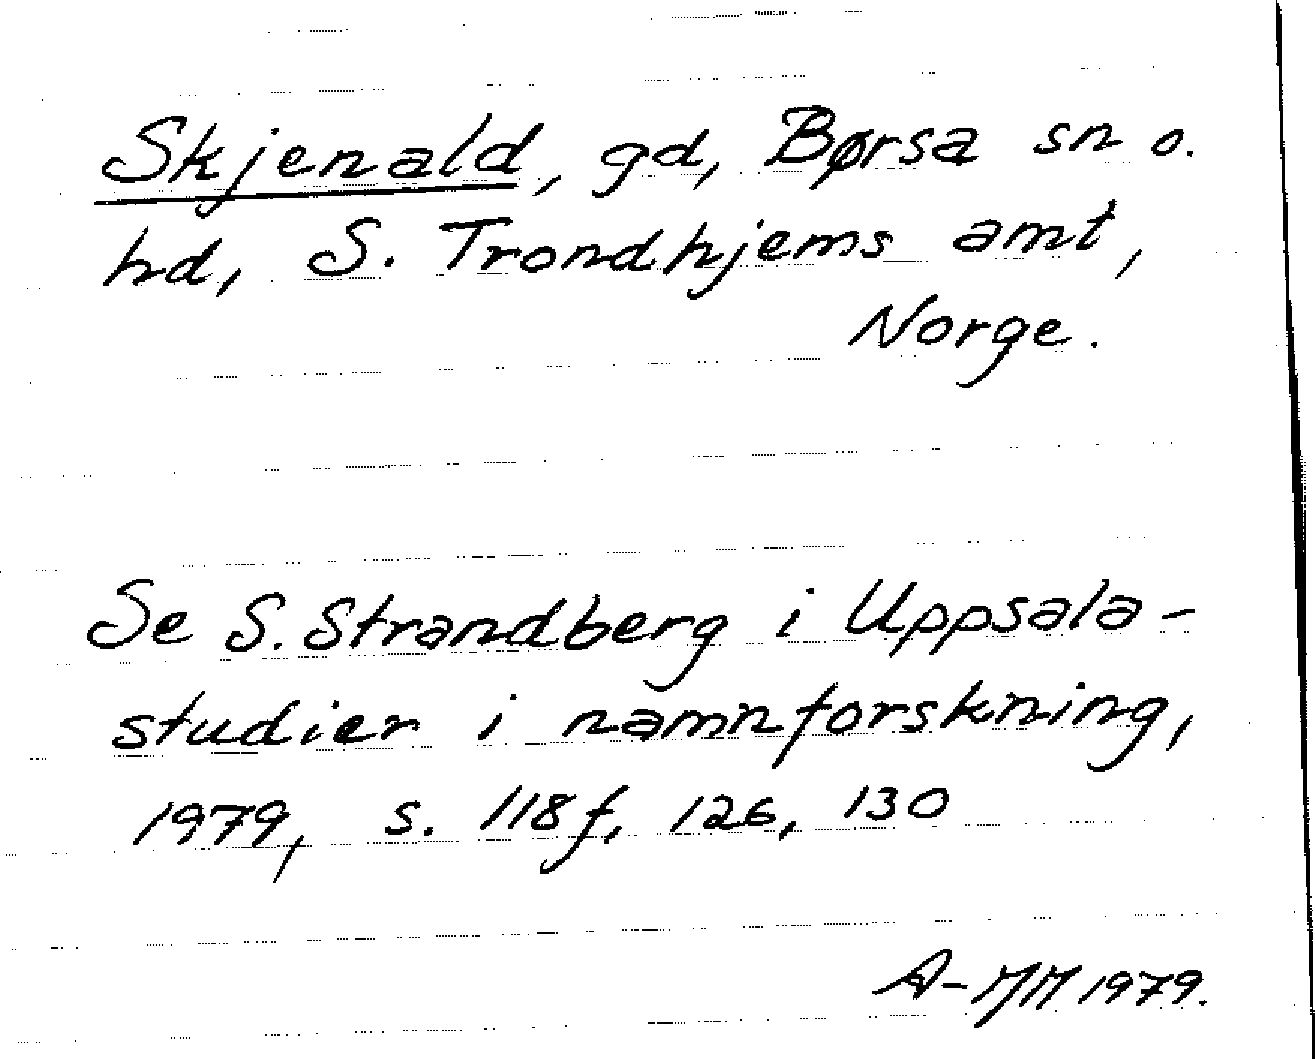 Skjenald, gd, Børsa sn o.
hd, S. Trondhjems amt,
Norge.
Se S. Strandberg i Uppsala-
studier i namnforskning,
1979, s. 118 f, 126, 130
A-MM 1979.